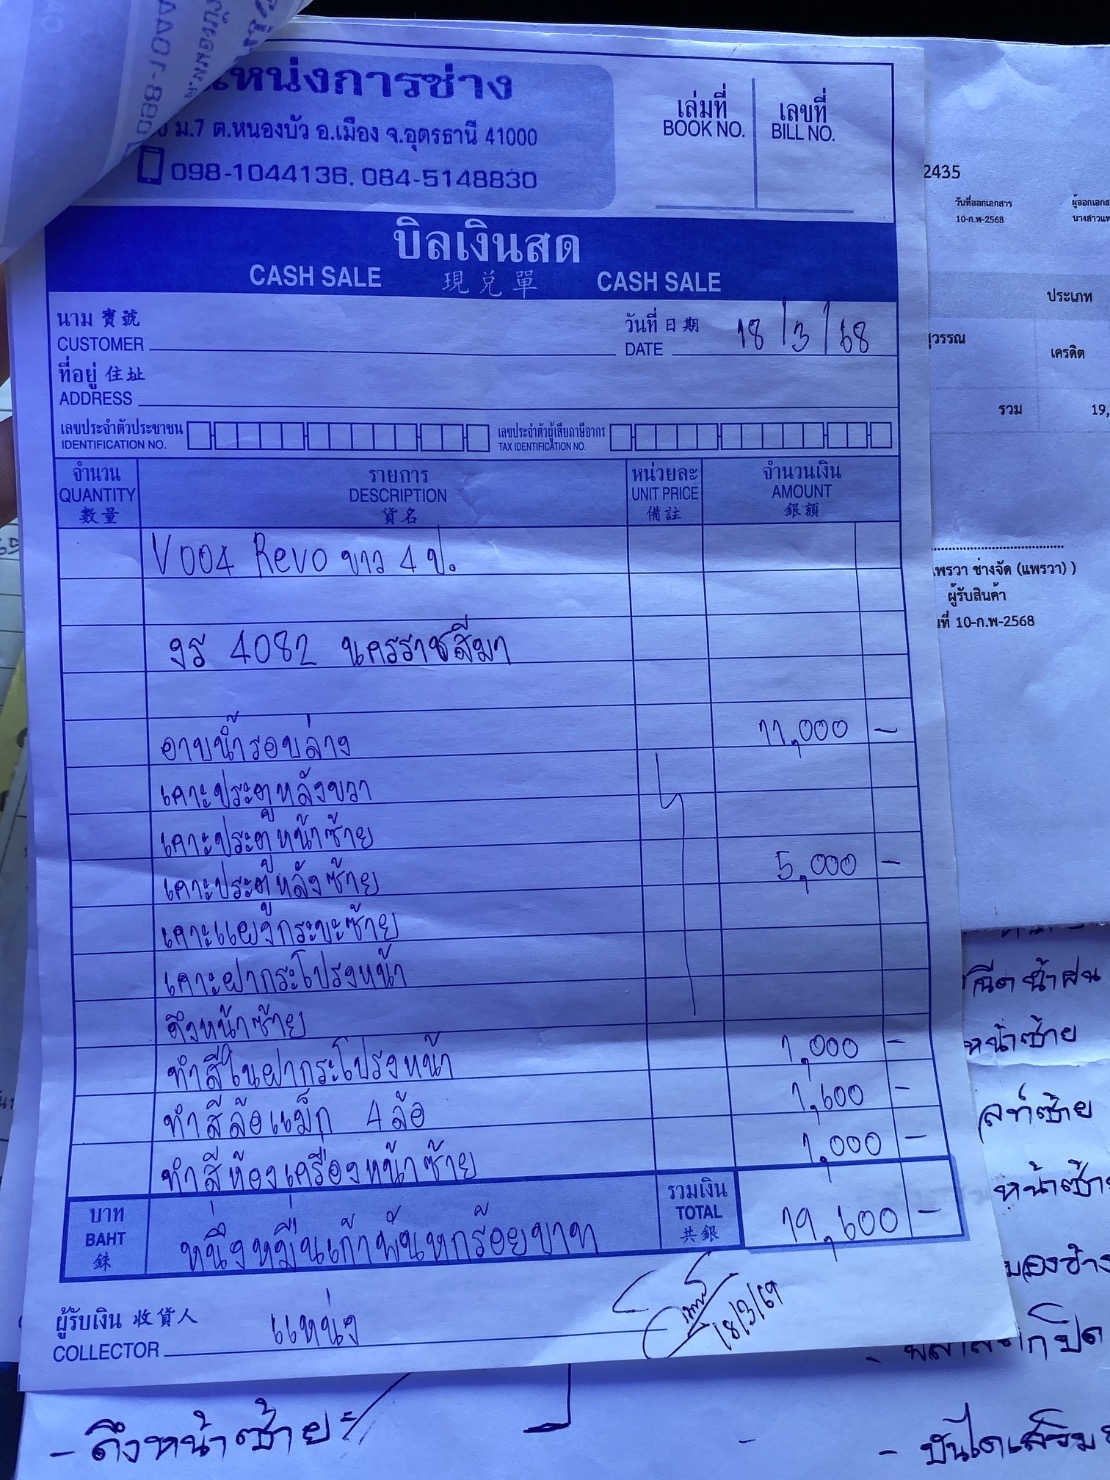 หน่งการช่าง
ม.7 ต.หนองบัว อ.เมือง จ.อุดรธานี 41000
098-1044136, 084-5148830
เล่มที่
BOOK NO.
เลขที่
BILL NO.
บิลเงินสด
CASH SALE 現兌單 CASH SALE
นาม 寶號
CUSTOMER
วันที่ 日期
DATE 18/3/68
ที่อยู่ 住址
ADDRESS
เลขประจำตัวประชาชน
IDENTIFICATION NO.
เลขประจำตัวผู้เสียภาษีอากร
TAX IDENTIFICATION NO.
จำนวน
QUANTITY
數量
รายการ
DESCRIPTION
貨名
หน่วยละ
UNIT PRICE
備註
จำนวนเงิน
AMOUNT
銀額
V004 Revo ขาว 4 ป.
งรี 4082 นครราชสีมา
อาบน้ำรอบล่าง 11,000 -
เคาะประตูหลังขวา
เคาะประตูหน้าซ้าย
เคาะประตูหลังซ้าย 5,000 -
เคาะแผงกระบะซ้าย
เคาะฝากระโปรงหน้า
ดึงหน้าซ้าย
ทำสีในฝากระโปรงหน้า 1,000 -
ทำสีล้อแม็ก 4 ล้อ 1,600 -
ทำสีห้องเครื่องหน้าซ้าย 1,000 -
บาท
BAHT
銖
หนึ่งหมื่นเก้าพันหกร้อยบาท
รวมเงิน
TOTAL
共銀
19,600 -
ผู้รับเงิน 收貨人
COLLECTOR แหน่ง
18/3/69
2435
วันที่ออกเอกสาร
10-ก.พ-2568
ผู้ออกเอกส
นางสาวแพ
ประเภท
วรรณ
เครดิต
รวม 19,
พรวา ช่างจัด (แพรวา) )
ผู้รับสินค้า
ที่ 10-ก.พ-2568
ฉีดน้ำฝน
หน้าซ้าย
หน้าซ้าย
- ดึงหน้าซ้าย
- บันไดเสริม